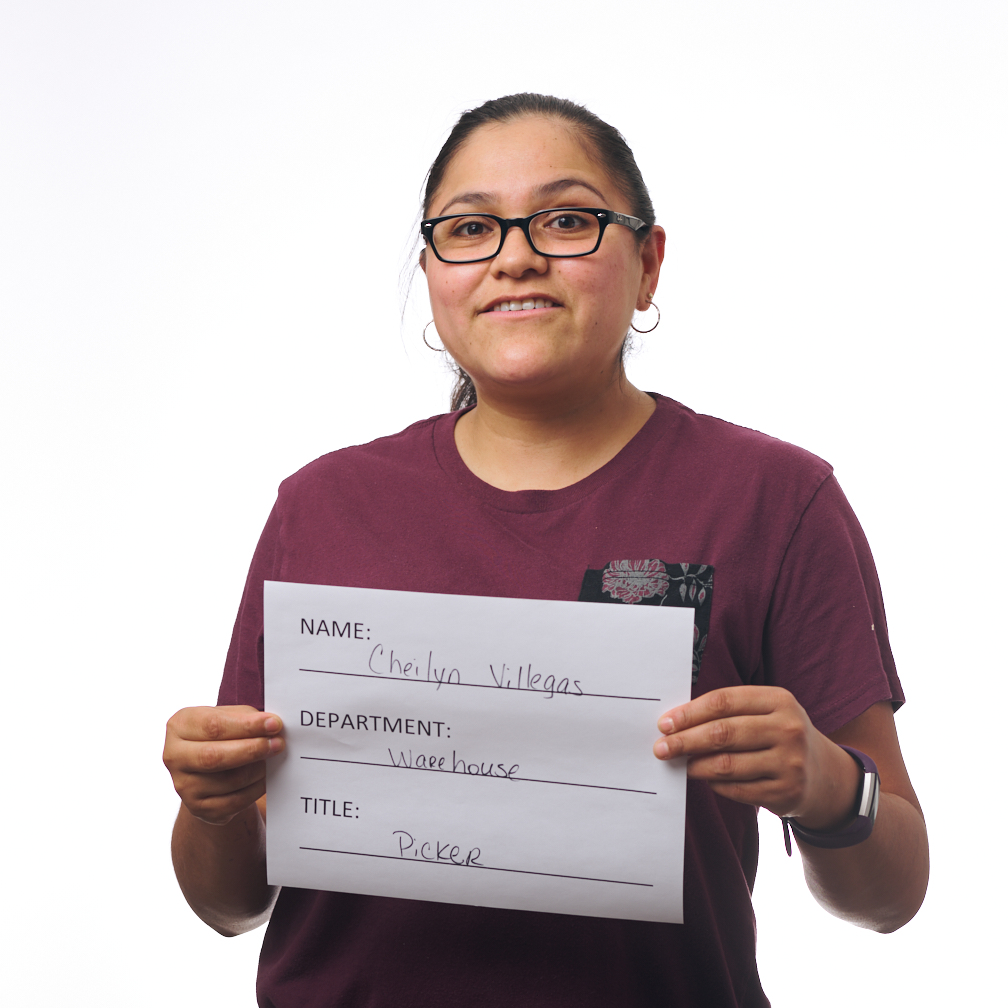 NAME:
Cheilyn Villegas
DEPARTMENT:
Warehouse
TITLE:
Picker